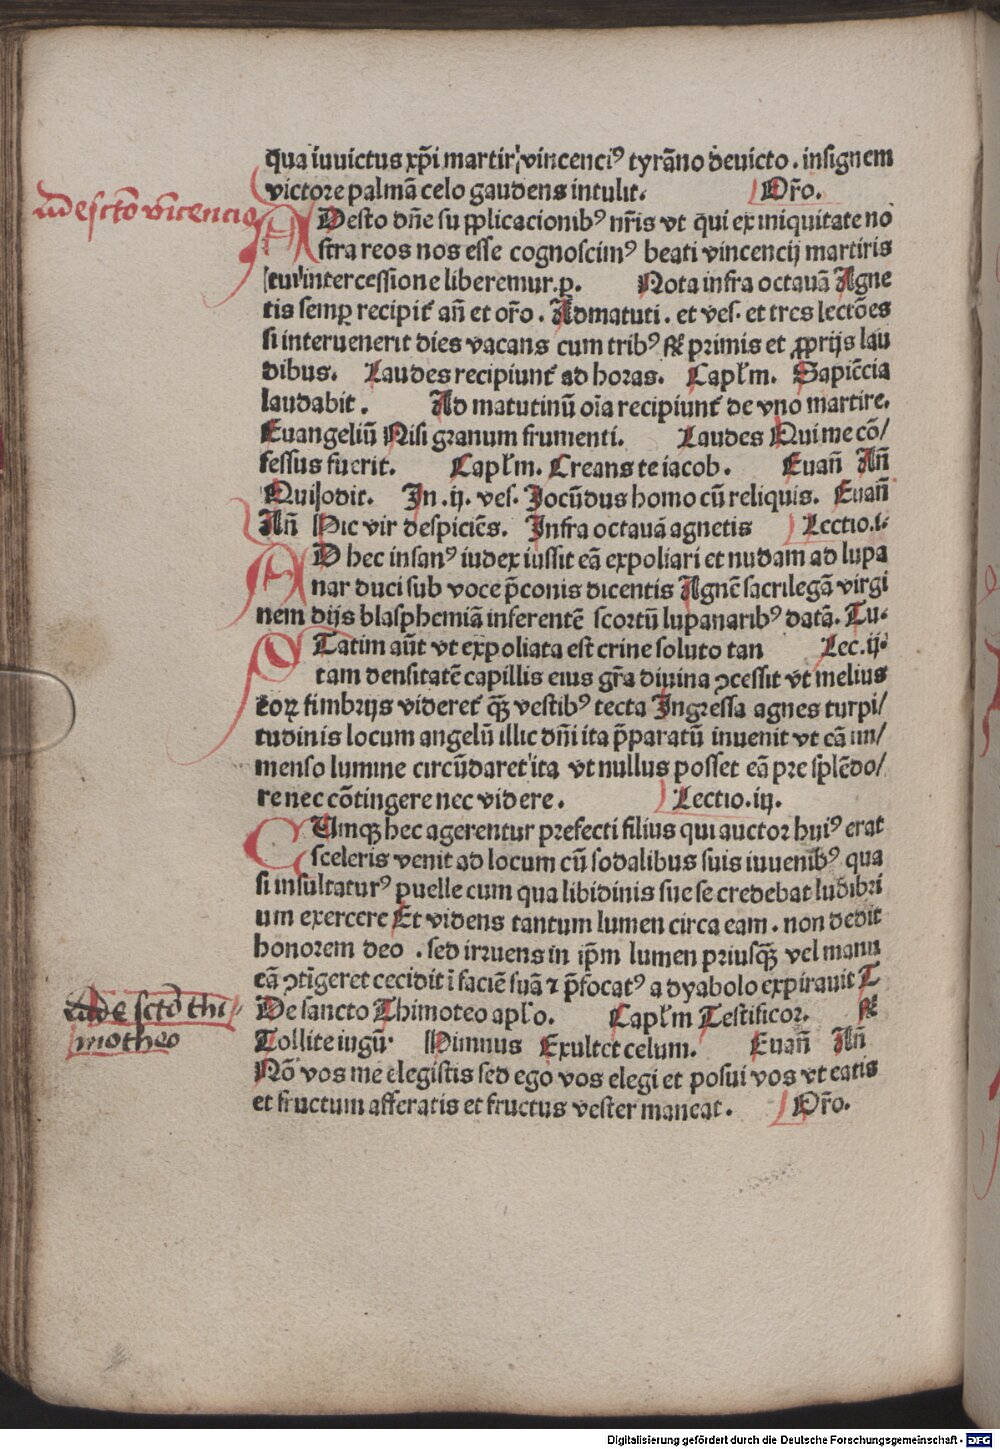 qua iuuictus xp̄i martir vincenciꝰ tyrāno deuicto . insignem
victore palmā celo gaudens intulit. Or̄o.
de sctō vincencio
ADesto dn̄e supplicacionibꝰ nr̄is vt qui ex iniquitate no
stra reos nos esse cognoscimꝰ beati vincencij martiris
tui intercessione liberemur.p. Nota infra octauā Agne
tis semꝑ recipit̄ an̄ et or̄o . Ad matuti . et ves. et tres lectōes
si interuenerit dies vacans cum tribꝰ ꝶ primis et ꝓprijs lau
dibus. Laudes recipiunt̄ ad horas. Capl̄m. Sapiēcia
laudabit . Ad matutinū oīa recipiunt̄ de vno martire.
Euangeliū Nisi granum frumenti. Laudes Qui me cō/
fessus fuerit. Capl̄m. Creans te iacob . Euan̄ An̄
Qui odit. In .ij. ves. Jocūdus homo cū reliquis. Euan̄
An̄ Hic vir despiciēs. Infra octauā agnetis Lectio.i.
AD hec insanꝰ iudex iussit eā expoliari et nudam ad lupa
nar duci sub voce p̄conis dicentis Agnē sacrilegā virgi
nem dijs blasphemiā inferentē scortū lupanaribꝰ datā. Tu.
STatim aūt vt expoliata est crine soluto tan Lec.ij.
tam densitatē capillis eius gr̄a diuina ꝯcessit vt melius
eoꝝ fimbrijs videret̄ qꝫ vestibꝰ tecta Ingressa agnes turpi/
tudinis locum angelū illic dn̄i ita p̄paratū inuenit vt eā im/
menso lumine circūdaret ita vt nullus posset eā pre splēdo/
re nec cōtingere nec videre . Lectio.iij.
CUmqꝫ hec agerentur prefecti filius qui auctor huiꝰ erat
sceleris venit ad locum cū sodalibus suis iuuenibꝰ qua
si insultaturꝰ puelle cum qua libidinis sue se credebat ludibri
um exercere Et videns tantum lumen circa eam . non dedit
honorem deo . sed irruens in ip̄m lumen priusqꝫ vel manu
eā ꝯtīgeret cecidit ī faciē suā ⁊ p̄focatꝰ a dyabolo expirauit T
de sctō thi
motheo
De sancto Thimoteo apl̄o. Capl̄m Testificor. ꝶ
Tollite iugū. Himnus Exultet celum. Euan̄ An̄
Nō vos me elegistis sed ego vos elegi et posui vos vt eatis
et fructum afferatis et fructus vester maneat . Or̄o.
Digitalisierung gefördert durch die Deutsche Forschungsgemeinschaft - DFG